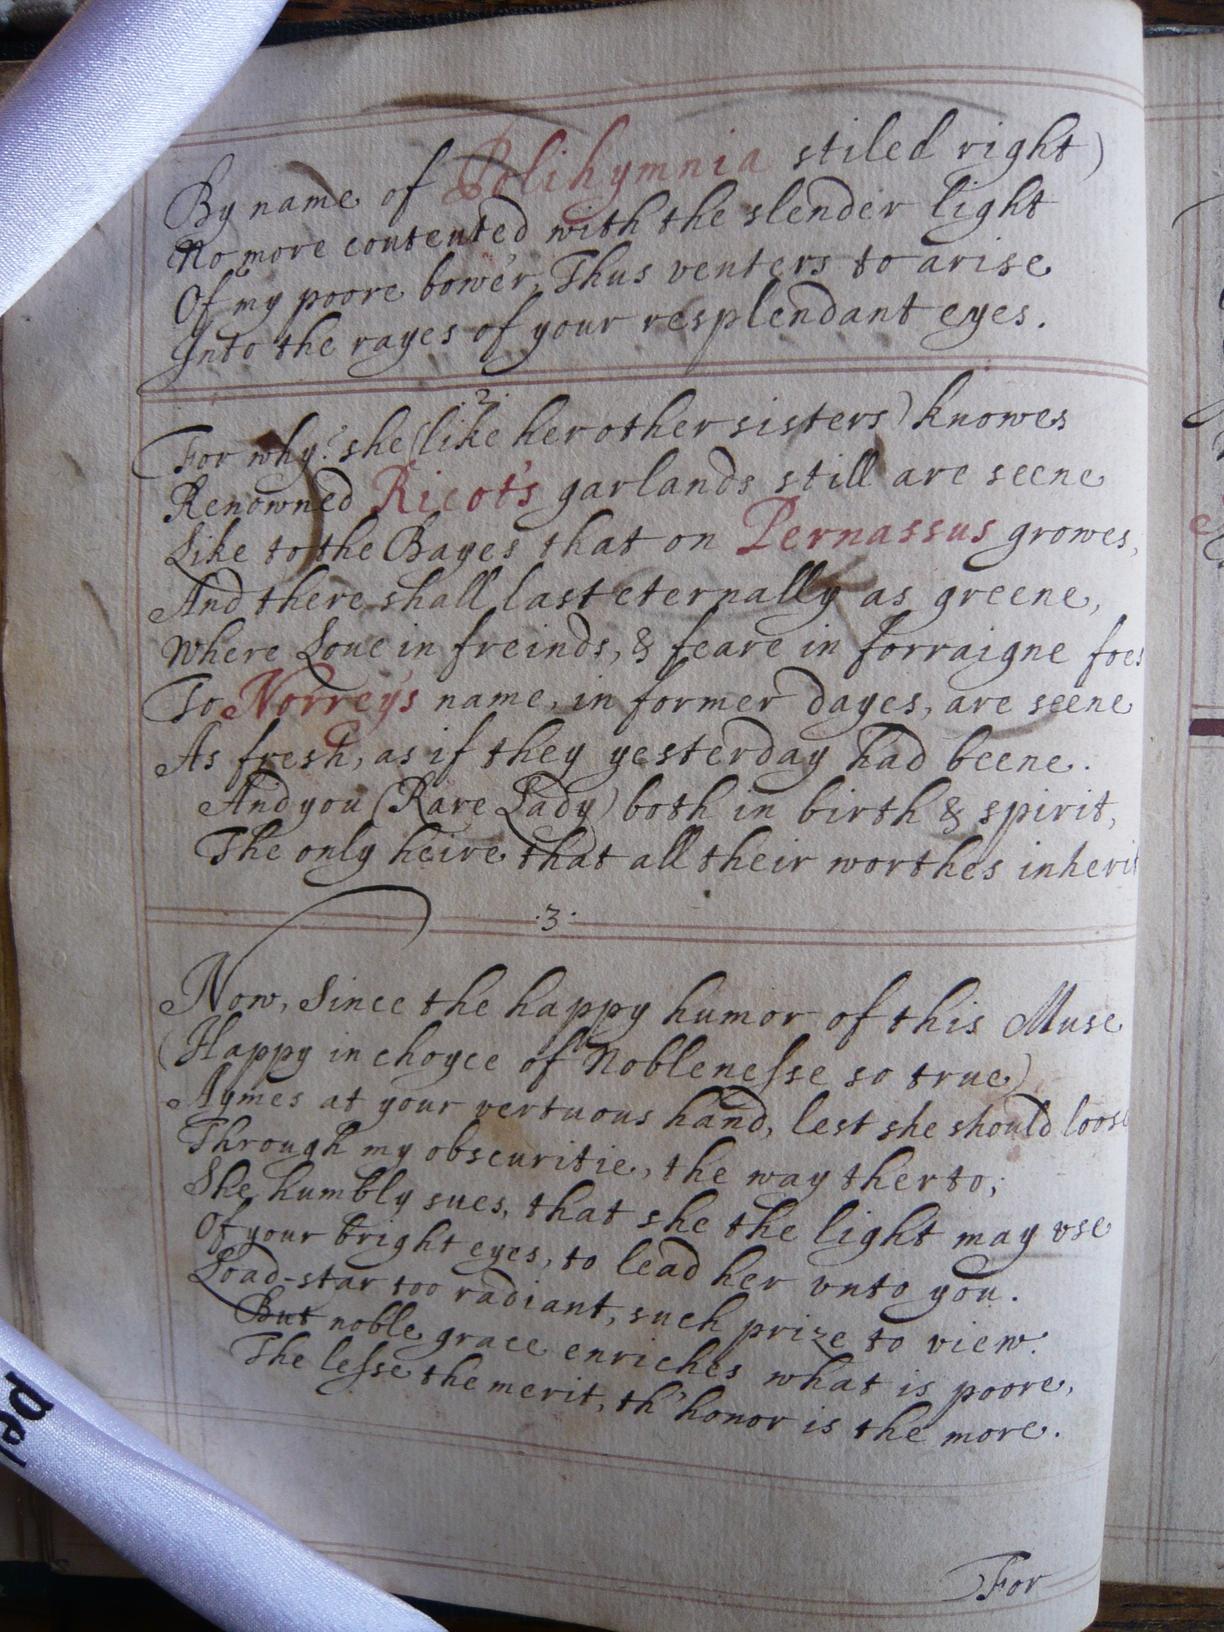 By name of Polihymnia stiled right)
No more contented with the slender light
Of my poore bower, Thus venters to arise
Into the rayes of your resplendant eyes.
.2.
For why? she (like her other sisters) knowes
Renowned Ricot's garlands still are seene
Like to the Bayes that on Pernassus growes,
And there shall last eternally as greene,
Where Loue in freinds, & feare in forraigne foes
To Norrey's name, in former dayes, are seene
As fresh, as if they yesterday had beene.
And you (Rare Lady) both in birth & spirit,
The only heire that all their worthes inherit
.3.
Now, Since the happy humor of this Muse
(Happy in choyce of Noblenesse so true)
Aymes at your vertuous hand, lest she should loose
Through my obscuritie, the way therto;
She humbly sues, that she the light may vse
Of your bright eyes, to lead her vnto you.
Load-star too radiant, such prize to view.
But noble grace enriches what is poore,
The lesse the merit, th' honor is the more.
For